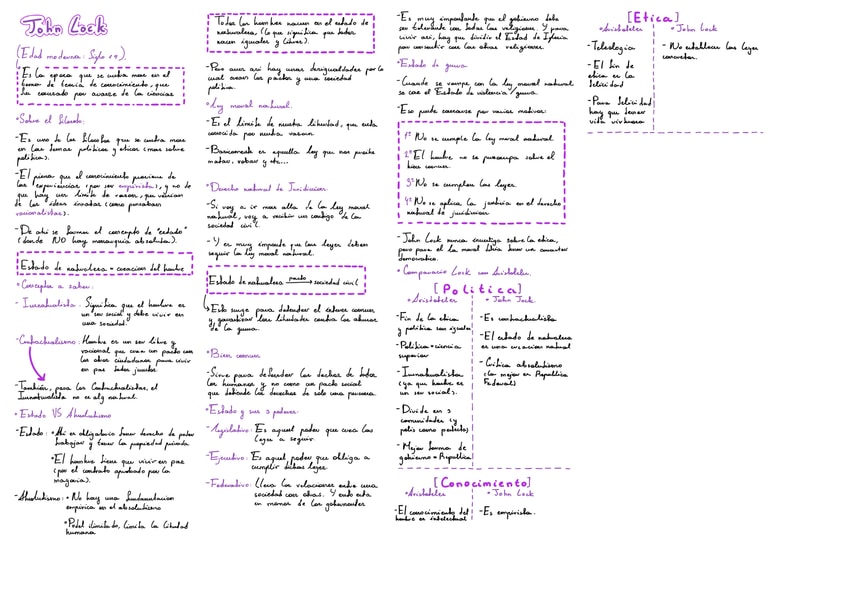 John Lock
(Edad moderna: Siglo 17).
Es la epoca que se centra mas en el
tema de teoria de conocimiento, que
ha causado por avanze de la ciencias
•Sobre el filosofo:
-Es uno de los filosofos que se centra mas
en los temas politicos y eticos (mas sobre
politica).
-El piensa que el conocimiento proviene de
las experiencias (por ser empirista), y no de
que hay un limite de razon, que venian
de las ideas innatas (como pensaban
racionalistas).
-De ahi se forman el concepto de "estado"
(donde NO hay monarquia absoluta).
Estado de naturaleza = creacion del hombre
•Conceptos a saber:
-Iusnaturalista: Significa que el hombre es
un ser social y debe vivir en
una sociedad.
-Contractualismo: Hombre es un ser libre y
racional que crea un pacto con
los otros ciudadanos para vivir
en paz todos juntos.
-Tambien, para los Contractualistas, el
Iusnaturalista no es alg natural.
•Estado VS Absolutismo
-Estado: •Ahi es obligatorio tener derecho de poder
trabajar y tener la propiedad privada.
•El hombre tiene que vivir en paz
(por el contrato aprobado por la
mayoria).
-Absolutismo: •No hay una fundamentacion
empirica en el absolutismo
•Poder ilimitado, limita la libertad
humana
Todos los hombres nacen en el estado de
naturaleza, (lo que significa que todos
nacen iguales y libres).
-Pero aun asi hay unas desigualdades por lo
cual crean los pactos y una sociedad
politica.
•Ley moral natural:
-Es el limite de nuestra libertad, que esta
conocida por nuestra razon.
-Basicamente es aquella ley que nos prohibe
matar, robar y etc...
•Derecho natural de Juridiccion:
-Si voy a ir mas alla de la ley moral
natural, voy a recibir un castigo de la
sociedad civil.
-Y es muy importante que las leyes deben
seguir la ley moral natural.
Estado de naturaleza pacto → sociedad civil
Esto surge para defender el interes comun,
y garantizar las libertades contra los abusos
de la guerra.
•Bien comun:
-Sirve para defender los derechos de todos
los humanos y no como un pacto social
que defiende los derechos de solo una persona.
•Estado y sus 3 poderes:
-legislativo: Es aquel poder que crea las
leyes a seguir
-Ejecutivo: Es aquel poder que obliga a
cumplir dichas leyes.
-Federativo: Lleva las relaciones entre una
sociedad con otras. Y esto esta
en manos de los gobernantes
-Es muy importante que el gobierno debe
ser tolerante con todas las religiones. Y para
vivir asi, hay que dividir el Estado de Iglesia
por consentir con las otras religiones.
•Estado de guerra
-Cuando se rompe con la ley moral natural
se cae el Estado de violencia/guerra.
-Eso puede causarse por varios motivos:
1º No se cumple la ley moral natural
2º El hombre no se preocupa sobre el
bien comun.
3º No se cumplen las leyes.
4º No se aplica la justicia en el derecho
natural de juridiccion.
-John Lock nunca investiga sobre la etica,
pero para el la moral deberia tener un caracter
democratico.
•Comparacion Lock con Aristoteles.
[Politica]
•Aristoteles
-Fin de la etica
y politica son iguales
-Politica = ciencia
superior
-Iusnaturalista
(ya que hombre es
un ser social).
-Divide en 3
comunidades (y
polis como perfecta)
-Mejor forma de
gobierno = Republica
•John Jock
-Es contractualista
-El estado de naturaleza
es una creacion natural
-Critica absolutismo
(lo mejor es Republica
Federal)
[Conocimiento]
•Aristoteles
-El conocimiento del
hombre es intelectual
•John Lock
-Es empirista.
[Etica]
•Aristoteles
-Teleologica
-El fin de
etica es la
felicidad
-Para felicidad
hay que tener
vida virtuosa
•John Lock
-No establece las leyes
concretas.